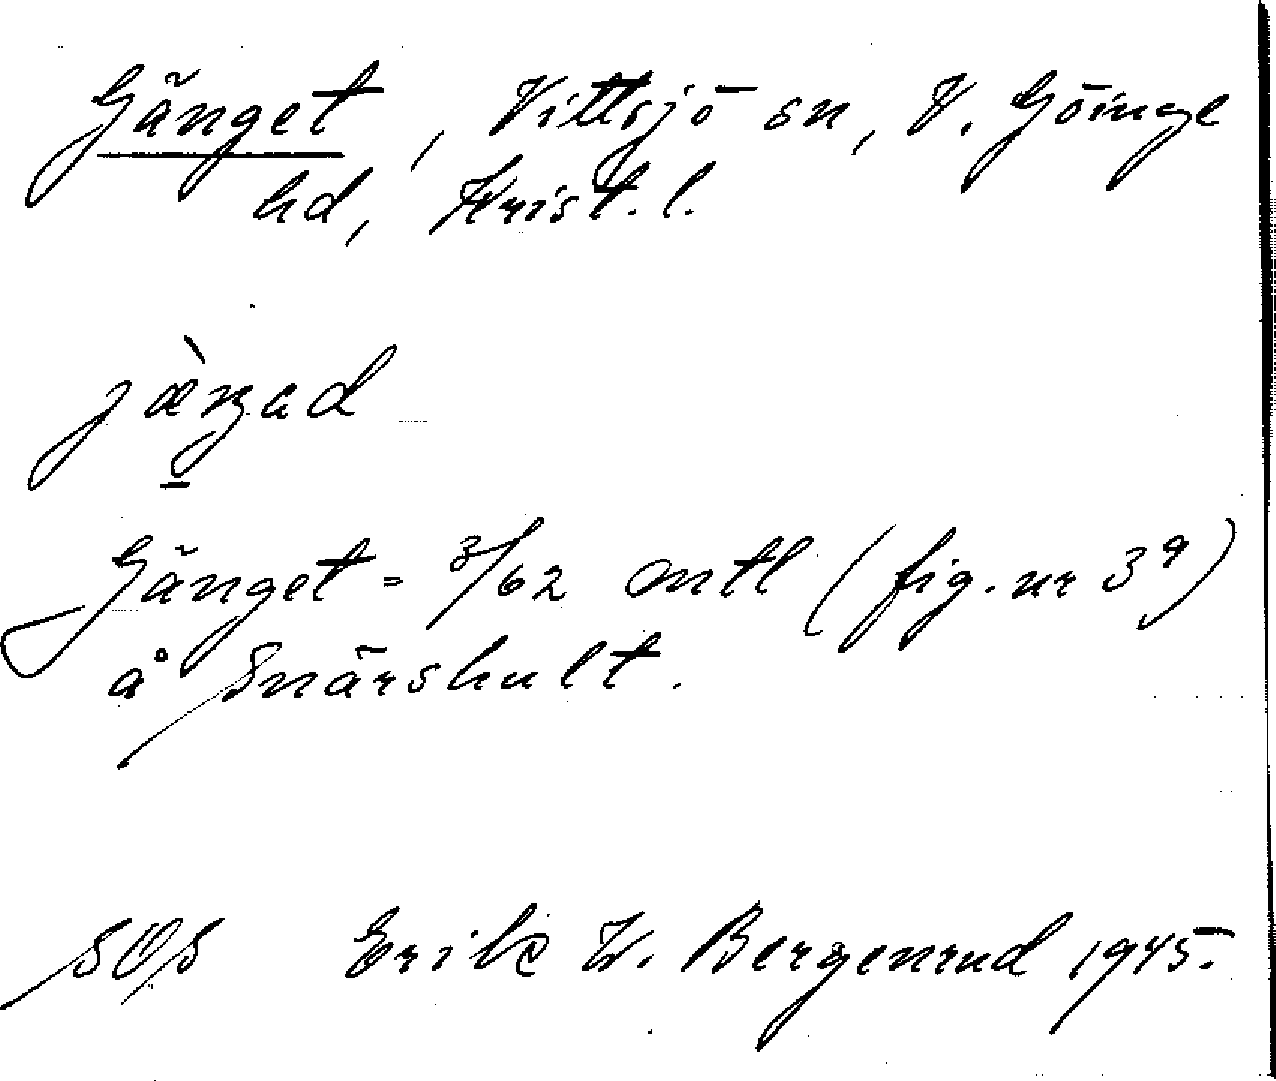 Gänget, Vittsjö sn, V. Göinge
hd, Krist. l.
Gänget = 3/62 mtl (fig. nr 3⁹)
å Snärshult.
SOS Erik W. Bergenrud 1945.